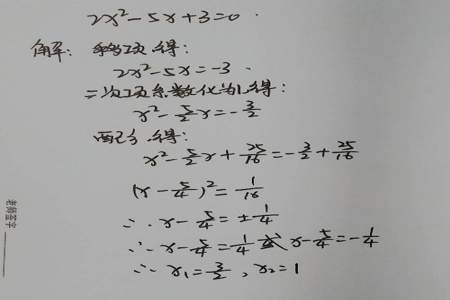 2x²-5x+3=0.
解: 移项, 得:
2x²-5x=-3.
二次项系数化为1, 得:
x²-5/2x=-3/2
配方, 得:
x²-5/2x+25/16=-3/2+25/16
(x-5/4)²=1/16
∴x-5/4=±1/4
∴x-5/4=1/4或x-5/4=-1/4
∴x₁=3/2, x₂=1
老师签字